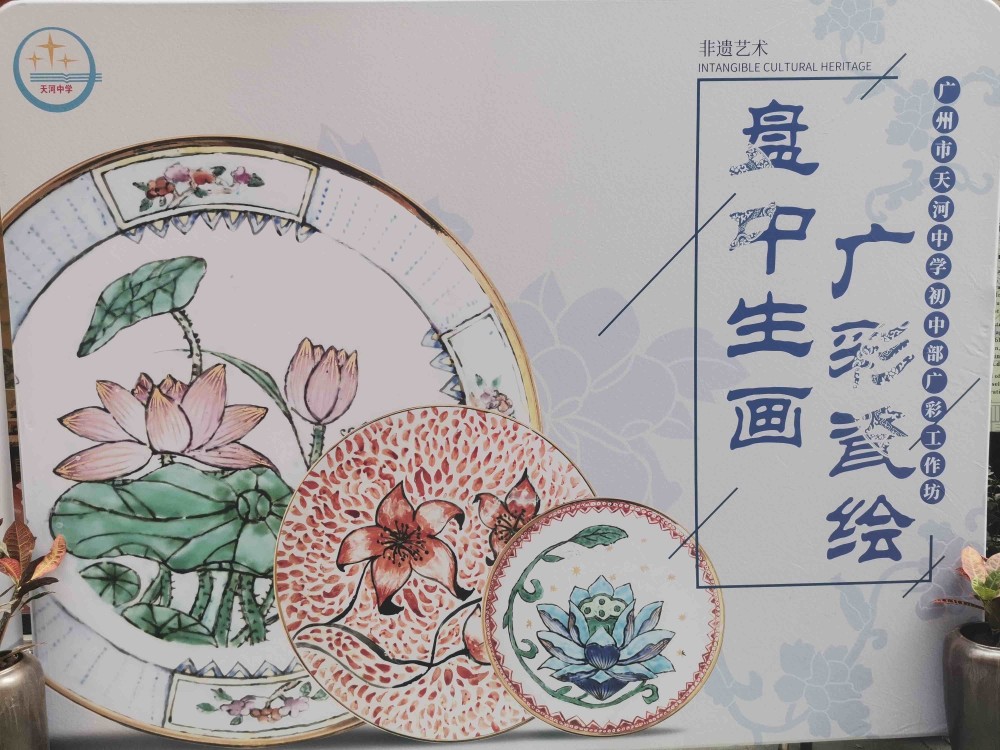 天河中学
非遗艺术
INTANGIBLE CULTURAL HERITAGE
广州市天河中学初中部广彩工作坊
广彩瓷绘
盘中生画